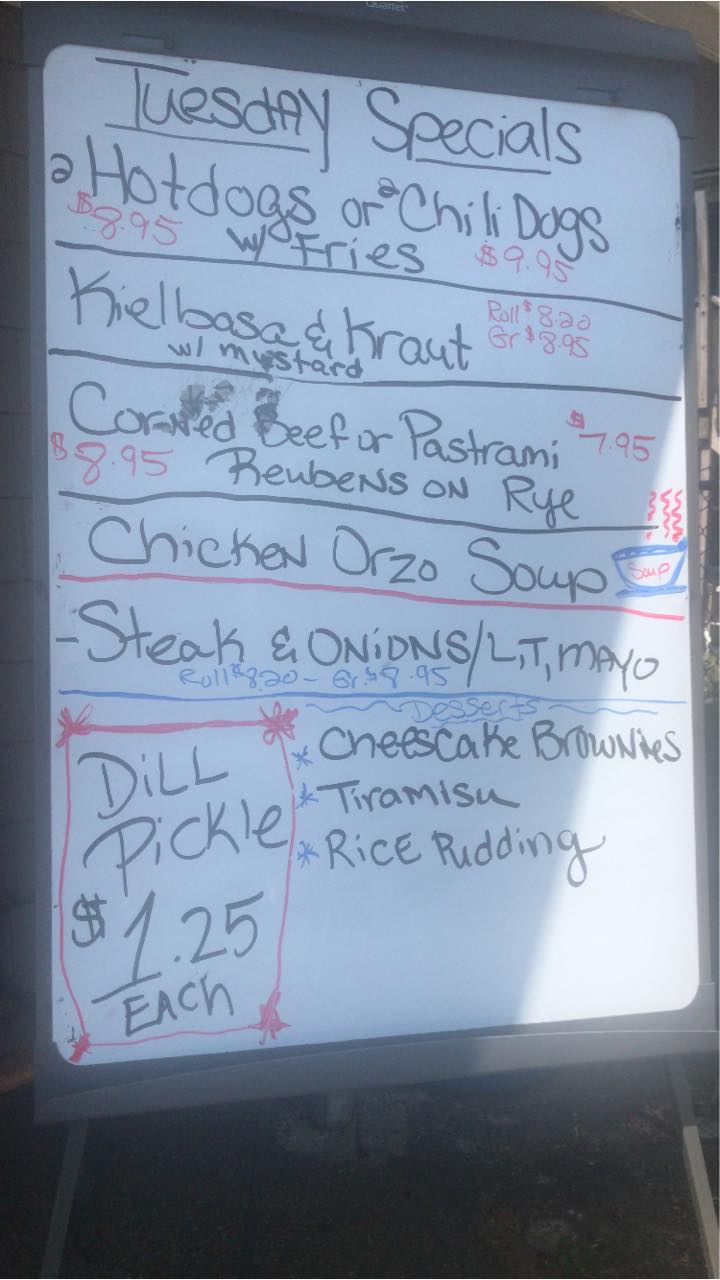 Quartet
Tuesday Specials
2 Hotdogs or 2 Chili Dogs
$8.95 w/ Fries $9.95
Kielbasa & Kraut Roll $8.20
w/ mustard Gr $8.95
Corned Beef or Pastrami $7.95
$8.95 Reubens on Rye
Chicken Orzo Soup Soup
-Steak & Onions/L,T, mayo
Roll $8.20 - Gr. $8.95
Desserts
* Cheescake Brownies
* Tiramisu
* Rice Pudding
Dill
Pickle
$1.25
Each